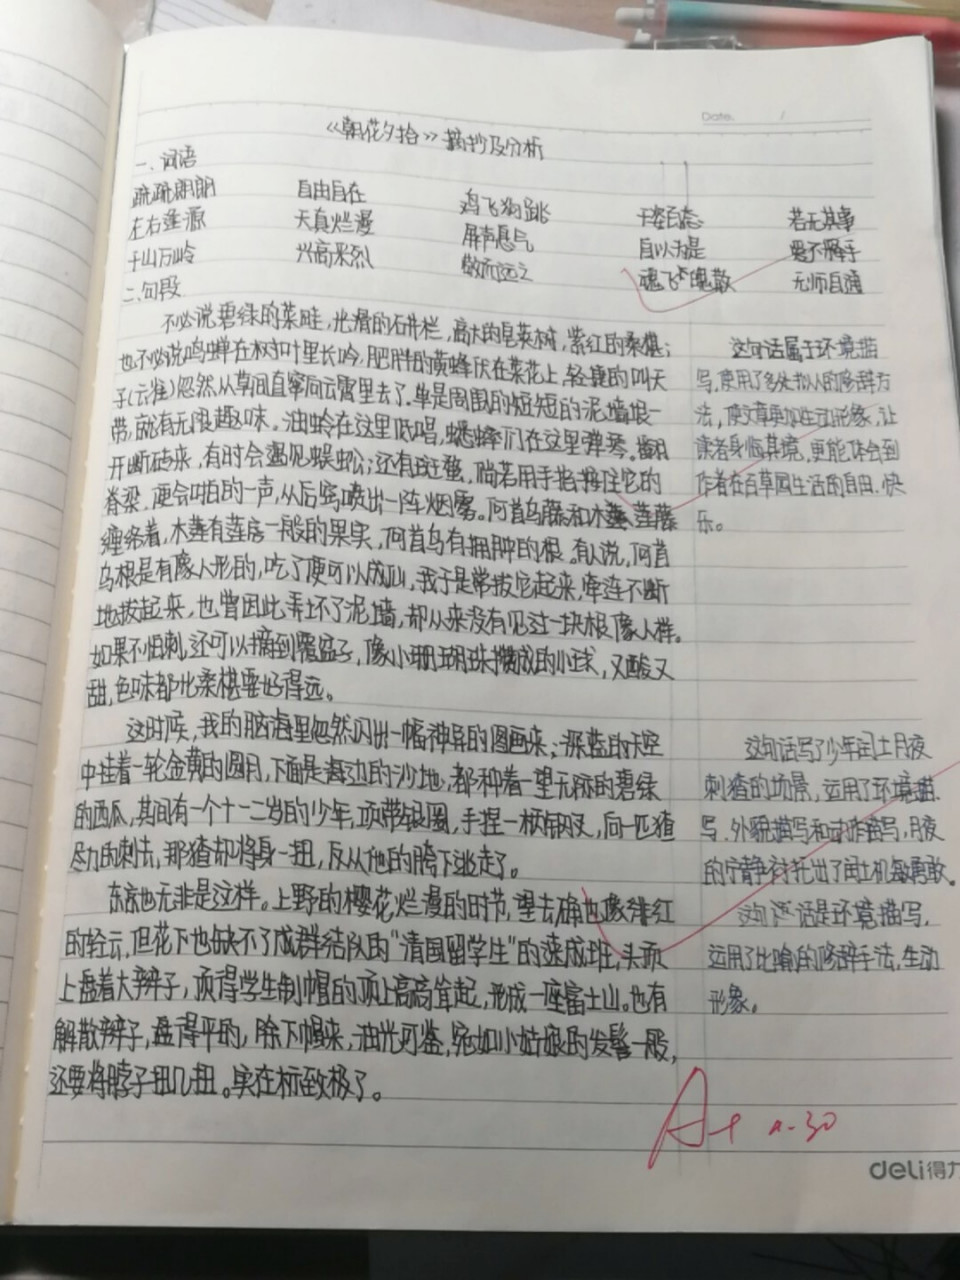 Date. /
《朝花夕拾》摘抄及分析
一、词语
疏疏朗朗 自由自在 鸡飞狗跳 千姿百态 若无其事
左右逢源 天真烂漫 屏声息气 自以为是 爱不释手
千山万岭 兴高采烈 敬而远之 魂飞魄散 无师自通
二、句段
不必说碧绿的菜畦，光滑的石井栏，高大的皂荚树，紫红的桑椹；
也不必说鸣蝉在树叶里长吟，肥胖的黄蜂伏在菜花上，轻捷的叫天
子(云雀)忽然从草间直窜向云霄里去了。单是周围的短短的泥墙根一
带，就有无限趣味。油蛉在这里低唱，蟋蟀们在这里弹琴。翻
开断砖来，有时会遇见蜈蚣；还有斑蝥，倘若用手指按住它的
脊梁，便会啪的一声，从后窍喷出一阵烟雾。何首乌藤和木莲藤
缠络着，木莲有莲房一般的果实，何首乌有拥肿的根。有人说，何首
乌根是有像人形的，吃了便可以成仙，我于是常拔它起来，牵连不断
地拔起来，也曾因此弄坏了泥墙，却从来没有见过一块根像人样。
如果不怕刺，还可以摘到覆盆子，像小珊瑚珠攒成的小球，又酸又
甜，色味都比桑椹要好得远。
这句话属于环境描
写，使用了多处拟人的修辞方
法，使文章更加生动形象，让
读者身临其境，更能体会到
作者在百草园生活的自由、快
乐。
这时候，我的脑海里忽然闪出一幅神异的图画来：深蓝的天空
中挂着一轮金黄的圆月，下面是海边的沙地，都种着一望无际的碧绿
的西瓜，其间有一个十一二岁的少年，项带银圈，手捏一柄钢叉，向一匹猹
尽力的刺去，那猹却将身一扭，反从他的胯下逃走了。
这句话写了少年闰土月夜
刺猹的场景，运用了环境描
写、外貌描写和动作描写，月夜
的宁静衬托出了闰土机敏勇敢。
东京也无非是这样。上野的樱花烂漫的时节，望去确也像绯红
的轻云，但花下也缺不了成群结队的“清国留学生”的速成班，头顶
上盘着大辫子，顶得学生制帽的顶上高高耸起，形成一座富士山。也有
解散辫子，盘得平的，除下帽来，油光可鉴，宛如小姑娘的发髻一般，
还要将脖子扭几扭。实在标致极了。
这句话是环境描写，
运用了比喻的修辞手法，生动
形象。
A+
deli得力